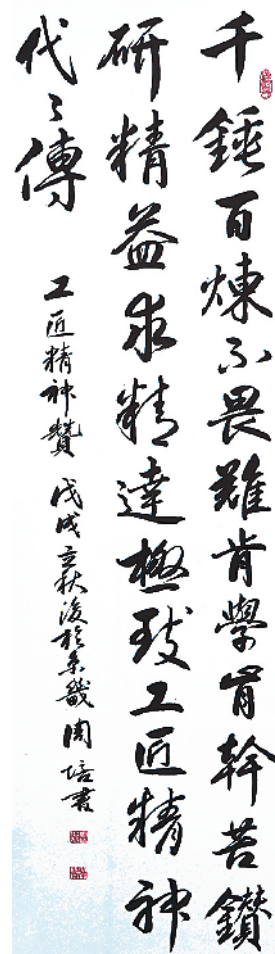 千錘百煉不畏難肯學肯幹苦鑽
研精益求精達極致工匠精神
代〻傳
工匠精神贊 戊戌立秋後於京畿 周培書